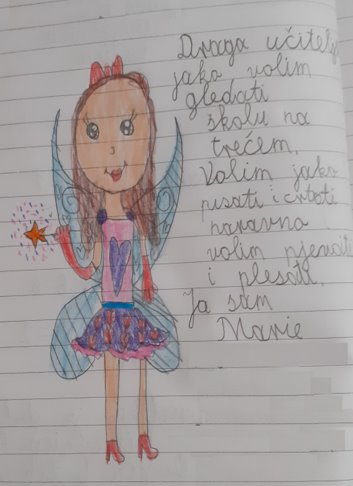 Draga učitelj
jako volim
gledati
školu na
trećem.
Volim jako
pisati i crtati
naravno
volim pjevati
i plesati.
Ja sam
Marie